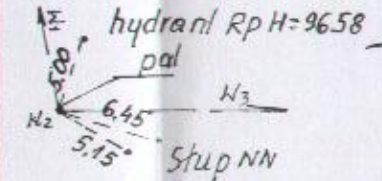 hydrant Rp H=9658
pal
5,00
N2
6,45
N3
5,15
Stup NN